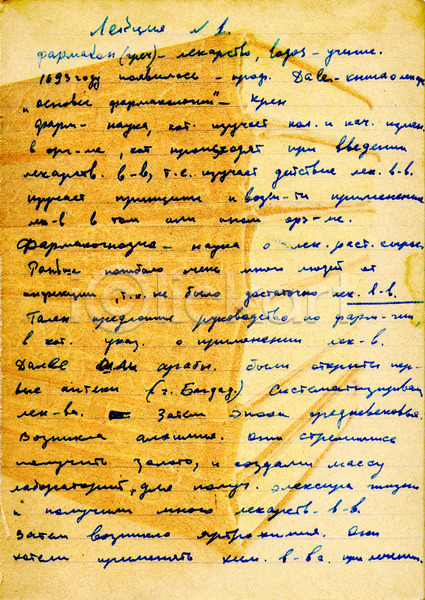 Лекция N 1.
фармакон (греч)- лекарство, logos - учение.
1693 году появилось - проф. Dale - книга о лек
"основы фармакологии" -
фарм- наука, кот. изучает кол. и кач. измен.
в орг-ме, кот происходят при введении
лекарств. в-в, т.е. изучает действие лек. в-в.
изучает принципы и возм-ти применения
лк-в в том или ином орг-ме.
Фармакогнозия - наука о лек. раст. сырье.
Раньше погибало очень много людей от
инфекции, т.к. не было достаточно лек. в-в.
Гален предложил руководство по фарм-чии
в кот. указ. о применении лек-в.
Далее арабы. были открыты пер-
вые аптеки (г. Багдад.) Систематизировал
лек-ва. Затем эпоха средневековья.
Возникла алхимия. Они стремились
получить золото, и создали массу
лабораторий, для получ. эликсира жизни
и получили много лекарств-в-в.
Затем возникло ятрохимия. Они
хотели применять хим. в-ва. при лечении.